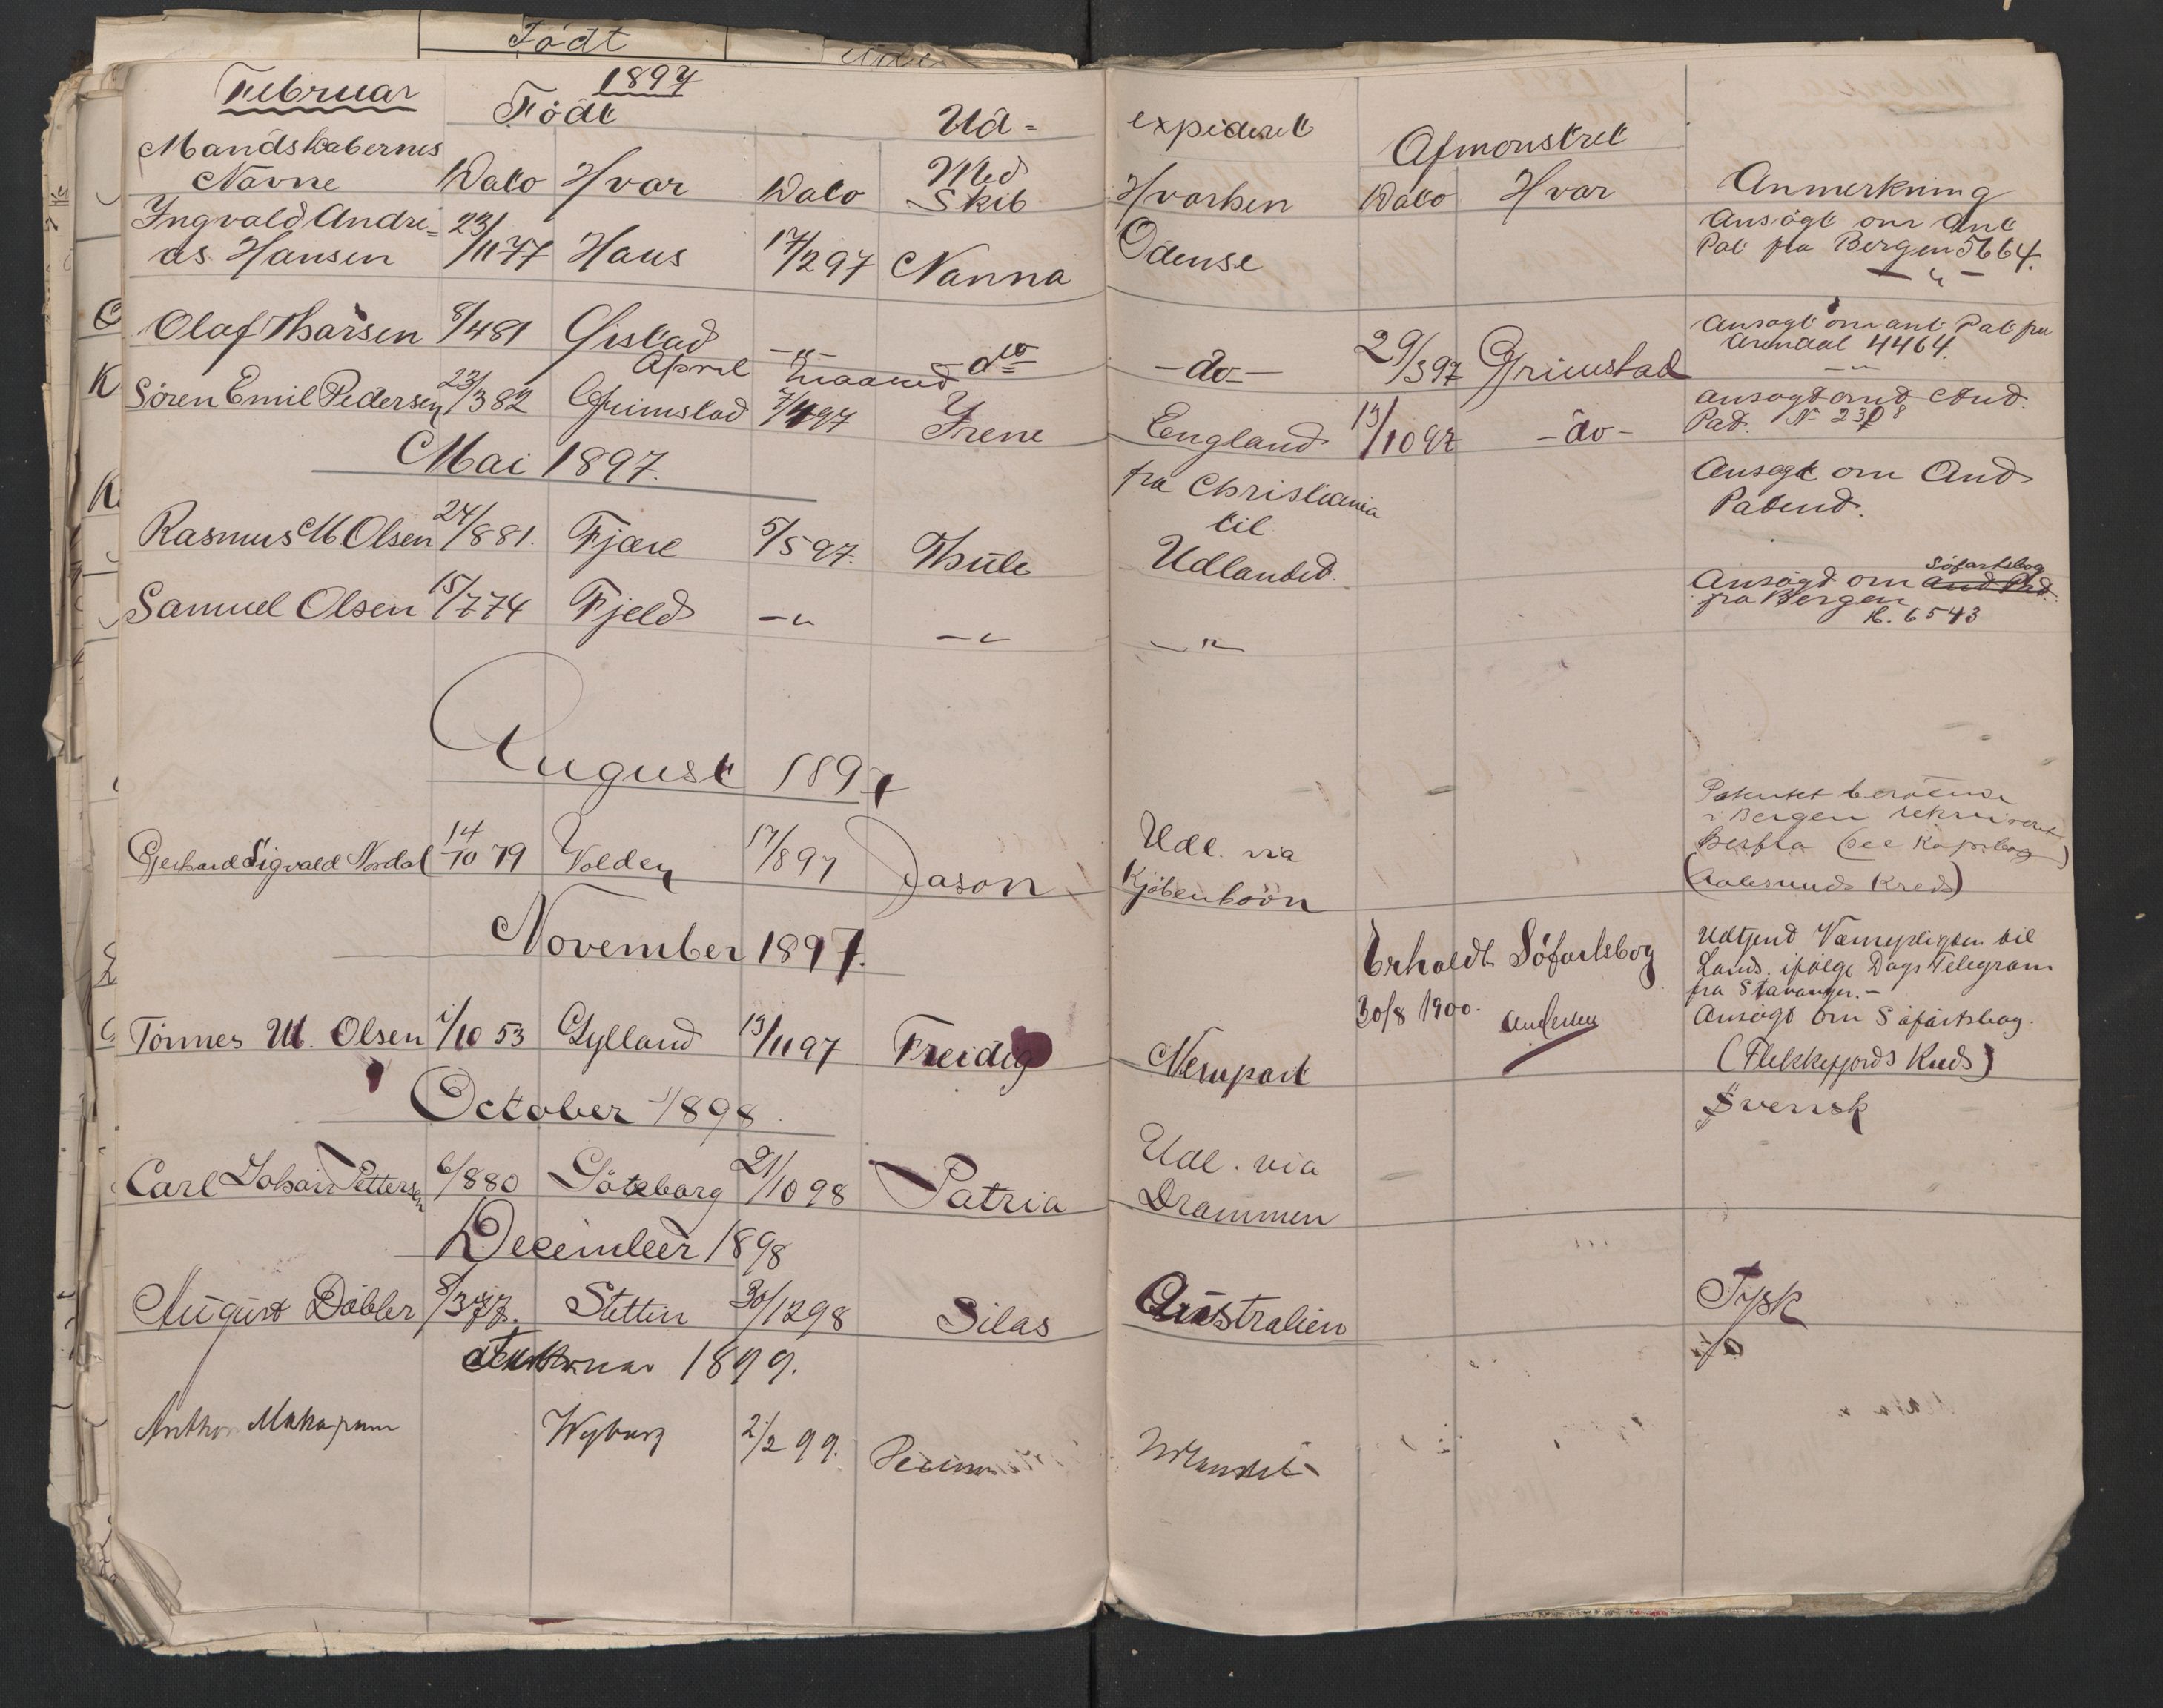 Födt
Februar 1897
Födt Ud= expederet Afmönstret
Mandskabernes
Navne Dato Hvar Dato Med Skib Hvorhen Dato Hvar Anmerkning
Ingvald Andre= 23/ Ansögt om Ant
as Hansen /11 77 Haus 17/2 97 Nanna Odense Pat fra Bergen 5664.
Olaf Tharsen 8/4 81 Gistad -"- - do - - do - 29/3 97 Grimstad Ansögt om ant. Pat fra
Arendal 4464.
April maaned
Sören Emil Pedersen 23/3 82 Grimstad 7/4 97 Irene England 13/10 97 - do - ansögt om And.
Pat. No 2308
Mai 1897.
fra Christiania Ansögt om And
til Patend.
Rasmus M Olsen 24/8 81. Fjære 5/5 97. Thule Udlandet.
Samuel Olsen 15/7 74 Fjeld -"- -"- -"- Ansögd om And. Pat. Söfartsbog
fra Bergen
N. 6543
August 1897
Patentet beroende
i Bergen
Gerhard Sigvald Nordal 14/10 79 Volden 17/8 97 Jason Udl. via herfra (see
Kjöbenhavn (Aalesunds Kreds)
November 1897.
Erholdt Söfartsbog Udtjend Værnepligten til
Lands. ifölge Dags Telegram
30/8 1900. Andersen fra Stavanger. -
Tönnes M. Olsen 1/10 53 Gylland 13/11 97 Freidig Newport Ansögt om Söfartsbog.
(Flekkefjords Kreds)
October 1898
Svensk
Carl Johan Pettersen 6/8 80 Göteborg 21/10 98 Patria Udl. via
Drammen
December 1898
August Döbler 8/3 77. Stettin 30/12 98 Silas Australien Tysk
Februar 1899.
Anthon Wyburg 2/2 99. Udlandet